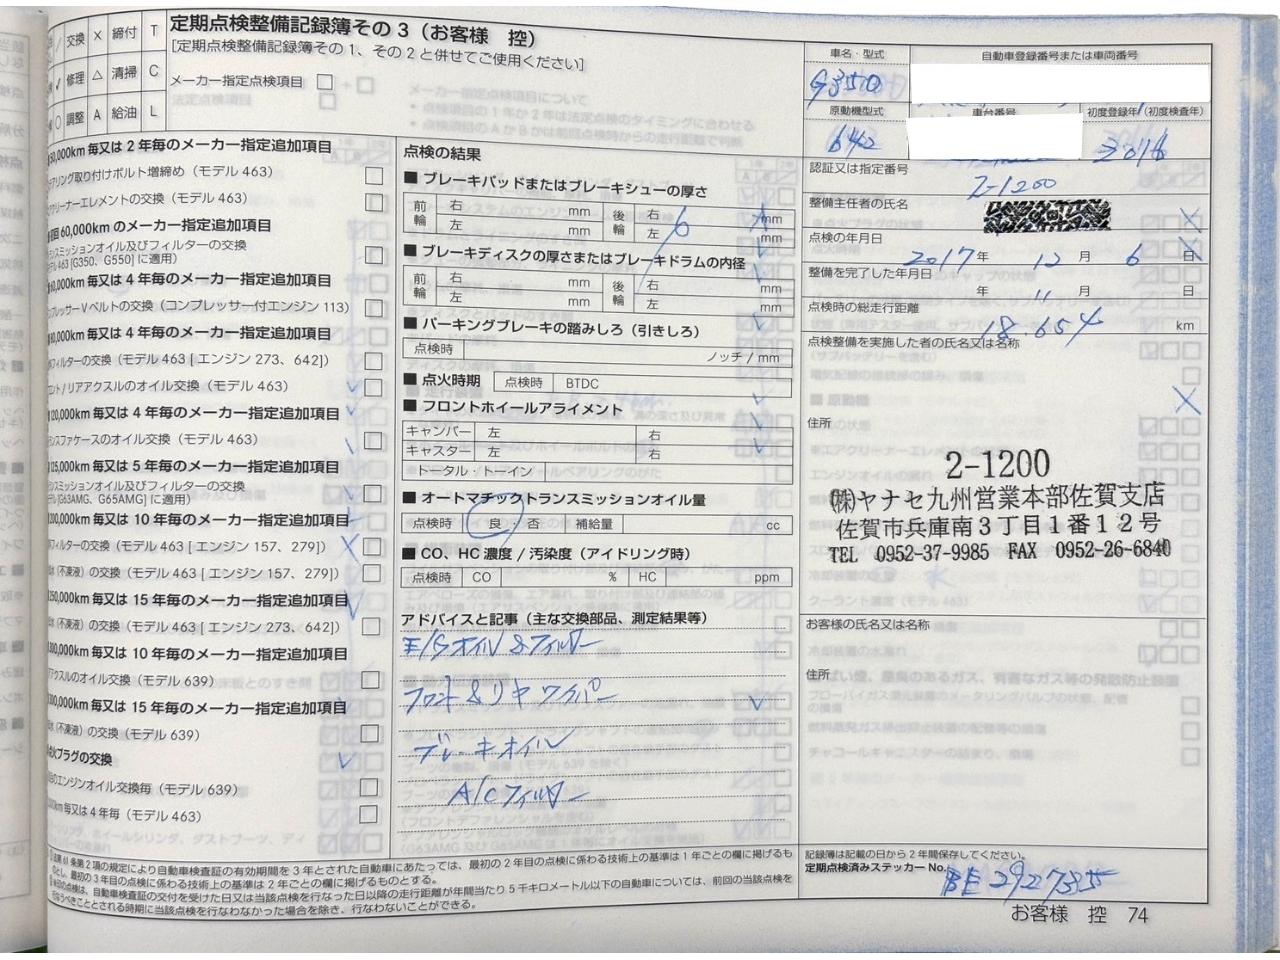 交換 X 締付 T
修理 △ 清掃 C
調整 A 給油 L
定期点検整備記録簿その3(お客様 控)
[定期点検整備記録簿その1、その2と併せてご使用ください]
メーカー指定点検項目
法定点検項目
0,000km 毎又は 2 年毎のメーカー指定追加項目
アリング取り付けボルト増締め(モデル 463)
アクリーナーエレメントの交換(モデル 463)
回 60,000km のメーカー指定追加項目
ンスミッションオイル及びフィルターの交換
デル 463 [G350、G550] に適用)
0,000km 毎又は 4 年毎のメーカー指定追加項目
プレッサー V ベルトの交換(コンプレッサー付エンジン 113)
0,000km 毎又は 4 年毎のメーカー指定追加項目
フィルターの交換(モデル 463 [ エンジン 273、642])
ント / リアアクスルのオイル交換(モデル 463)
120,000km 毎又は 4 年毎のメーカー指定追加項目
ンスファケースのオイル交換(モデル 463)
125,000km 毎又は 5 年毎のメーカー指定追加項目
ンスミッションオイル及びフィルターの交換
デル [G63AMG、G65AMG] に適用)
200,000km 毎又は 10 年毎のメーカー指定追加項目
フィルターの交換(モデル 463 [ エンジン 157、279])
水 (不凍液) の交換(モデル 463 [ エンジン 157、279])
250,000km 毎又は 15 年毎のメーカー指定追加項目
水 (不凍液) の交換(モデル 463 [ エンジン 273、642])
00,000km 毎又は 10 年毎のメーカー指定追加項目
アクスルのオイル交換(モデル 639)
00,000km 毎又は 15 年毎のメーカー指定追加項目
水 (不凍液) の交換(モデル 639)
火プラグの交換
のエンジンオイル交換毎(モデル 639)
km 毎又は 4 年毎(モデル 463)
点検の結果
■ ブレーキパッドまたはブレーキシューの厚さ
前輪 右 mm 後輪 右 6 mm
左 mm 左
■ ブレーキディスクの厚さまたはブレーキドラムの内径
前輪 右 mm 後輪 右 mm
左 mm 左 mm
■ パーキングブレーキの踏みしろ(引きしろ)
点検時 ノッチ / mm
■ 点火時期 点検時 BTDC
■ フロントホイールアライメント
キャンバー 左 右
キャスター 左 右
トータル・トーイン
■ オートマチックトランスミッションオイル量
点検時 良・否 補給量 cc
■ CO、HC 濃度 / 汚染度(アイドリング時)
点検時 CO % HC ppm
アドバイスと記事(主な交換部品、測定結果等)
E/Gオイル&フィルター
フロント&リヤ ワイパー
ブレーキオイル
A/Cフィルター
車名・型式
G350
自動車登録番号または車両番号
原動機型式
642
車台番号
初度登録年(初度検査年)
2016
認証又は指定番号
2-1200
整備主任者の氏名
点検の年月日
2017 年 12 月 6 日
整備を完了した年月日
年 11 月 日
点検時の総走行距離
18.654 km
点検整備を実施した者の氏名又は名称
住所
2-1200
㈱ヤナセ九州営業本部佐賀支店
佐賀市兵庫南3丁目1番12号
TEL 0952-37-9985 FAX 0952-26-6840
お客様の氏名又は名称
住所
条第 2 項の規定により自動車検査証の有効期間を 3 年とされた自動車にあたっては、最初の 2 年目の点検に係わる技術上の基準は 1 年ごとの欄に掲げるもの
とし、最初の 3 年目の点検に係わる技術上の基準は 2 年ごとの欄に掲げるものとする。
の点検は、自動車検査証の交付を受けた日又は当該点検を行なった日以降の走行距離が年間当たり 5 千キロメートル以下の自動車については、前回の当該点検を
行なうべきこととされる時期に当該点検を行なわなかった場合を除き、行なわないことができる。
記録簿は記載の日から 2 年間保存してください。
定期点検済みステッカー No. BE 2927335
お客様 控 74